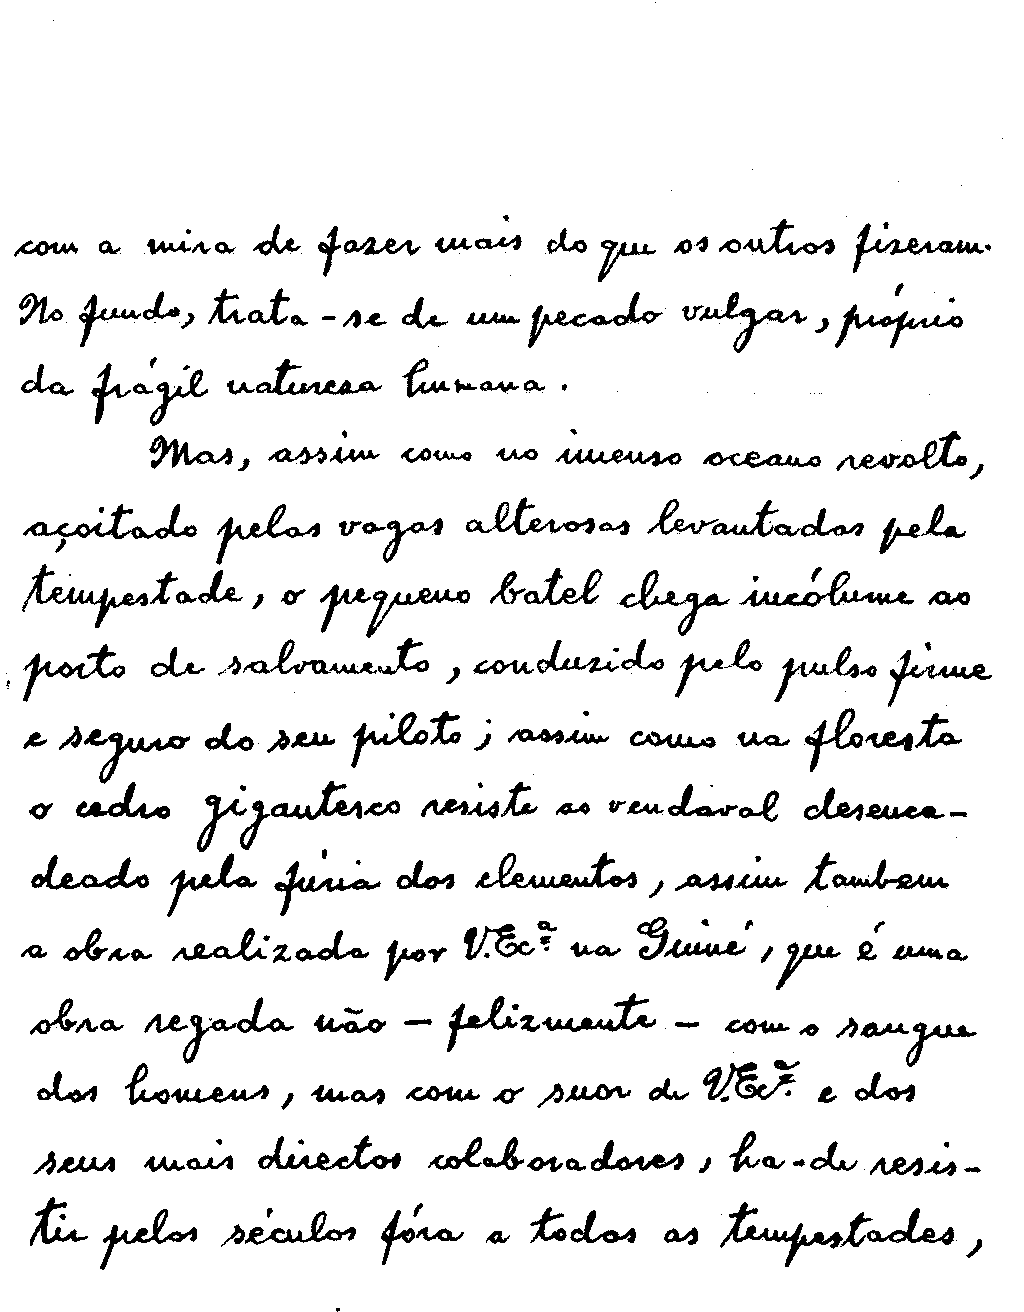 com a mira de fazer mais do que os outros fizeram.
No fundo, trata-se de um pecado vulgar, próprio
da frágil natureza humana.
Mas, assim como no imenso oceano revolto,
açoitado pelas vagas alterosas levantadas pela
tempestade, o pequeno batel chega incólume ao
porto de salvamento, conduzido pelo pulso firme
e seguro do seu piloto; assim como na floresta
o cedro gigantesco resiste ao vendaval desenca-
deado pela fúria dos elementos, assim tambem
a obra realizada por V.Ecª na Guiné, que é uma
obra regada não - felizmente - com o sangue
dos homens, mas com o suor de V.Ecª e dos
seus mais directos colaboradores, ha-de resis-
tir pelos séculos fóra a todas as tempestades,